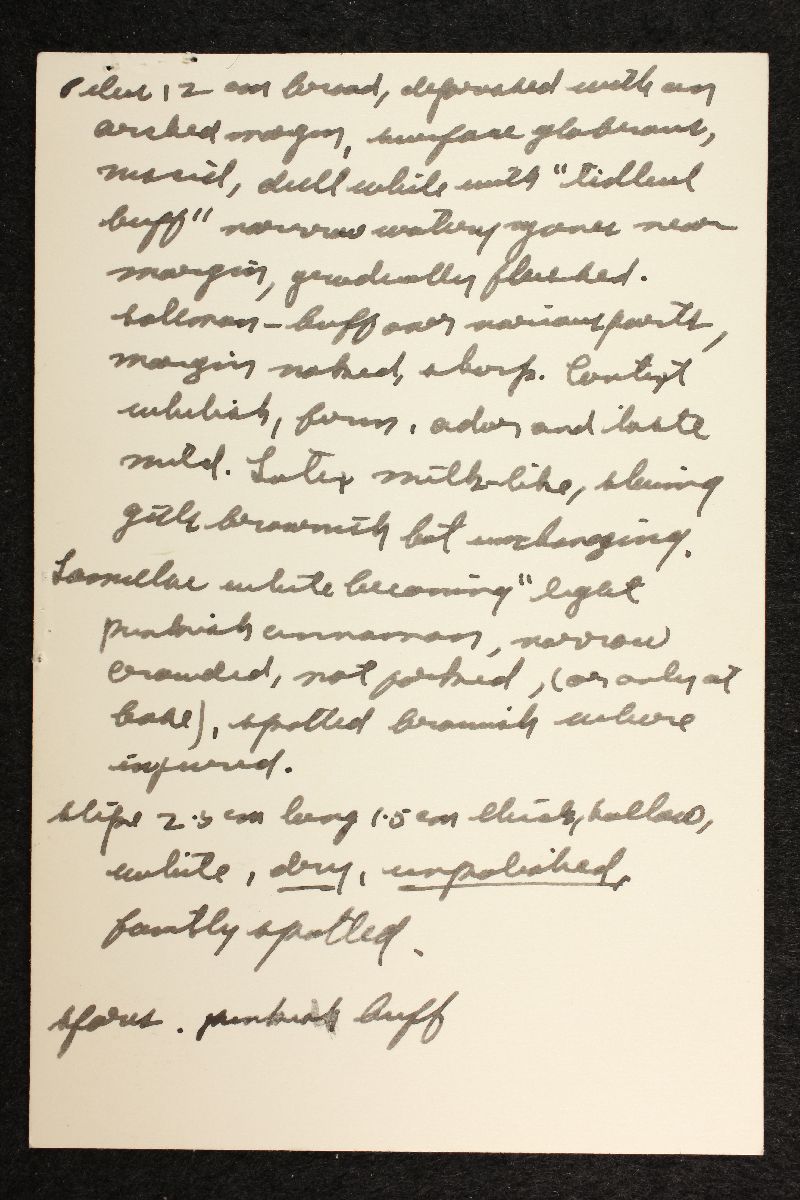 Pileus 12 cm broad, depressed with an
arched margin, surface glabrous,
viscid, dull white with "tilleul
buff" narrow watery zones near
margin, gradually flushed.
salmon-buff over various parts,
margin naked, sharp. Context
whitish, firm, odor and taste
mild. Latex milk-like, staining
gills brownish but unchanging.
Lamellae white becoming "light
pinkish cinnamon, narrow
crowded, not forked, (or only at
base), spotted brownish where
injured.
stipe 2.5 cm long 1.5 cm thick, hollow,
white, dry, unpolished,
faintly spotted.
spores. pinkish buff